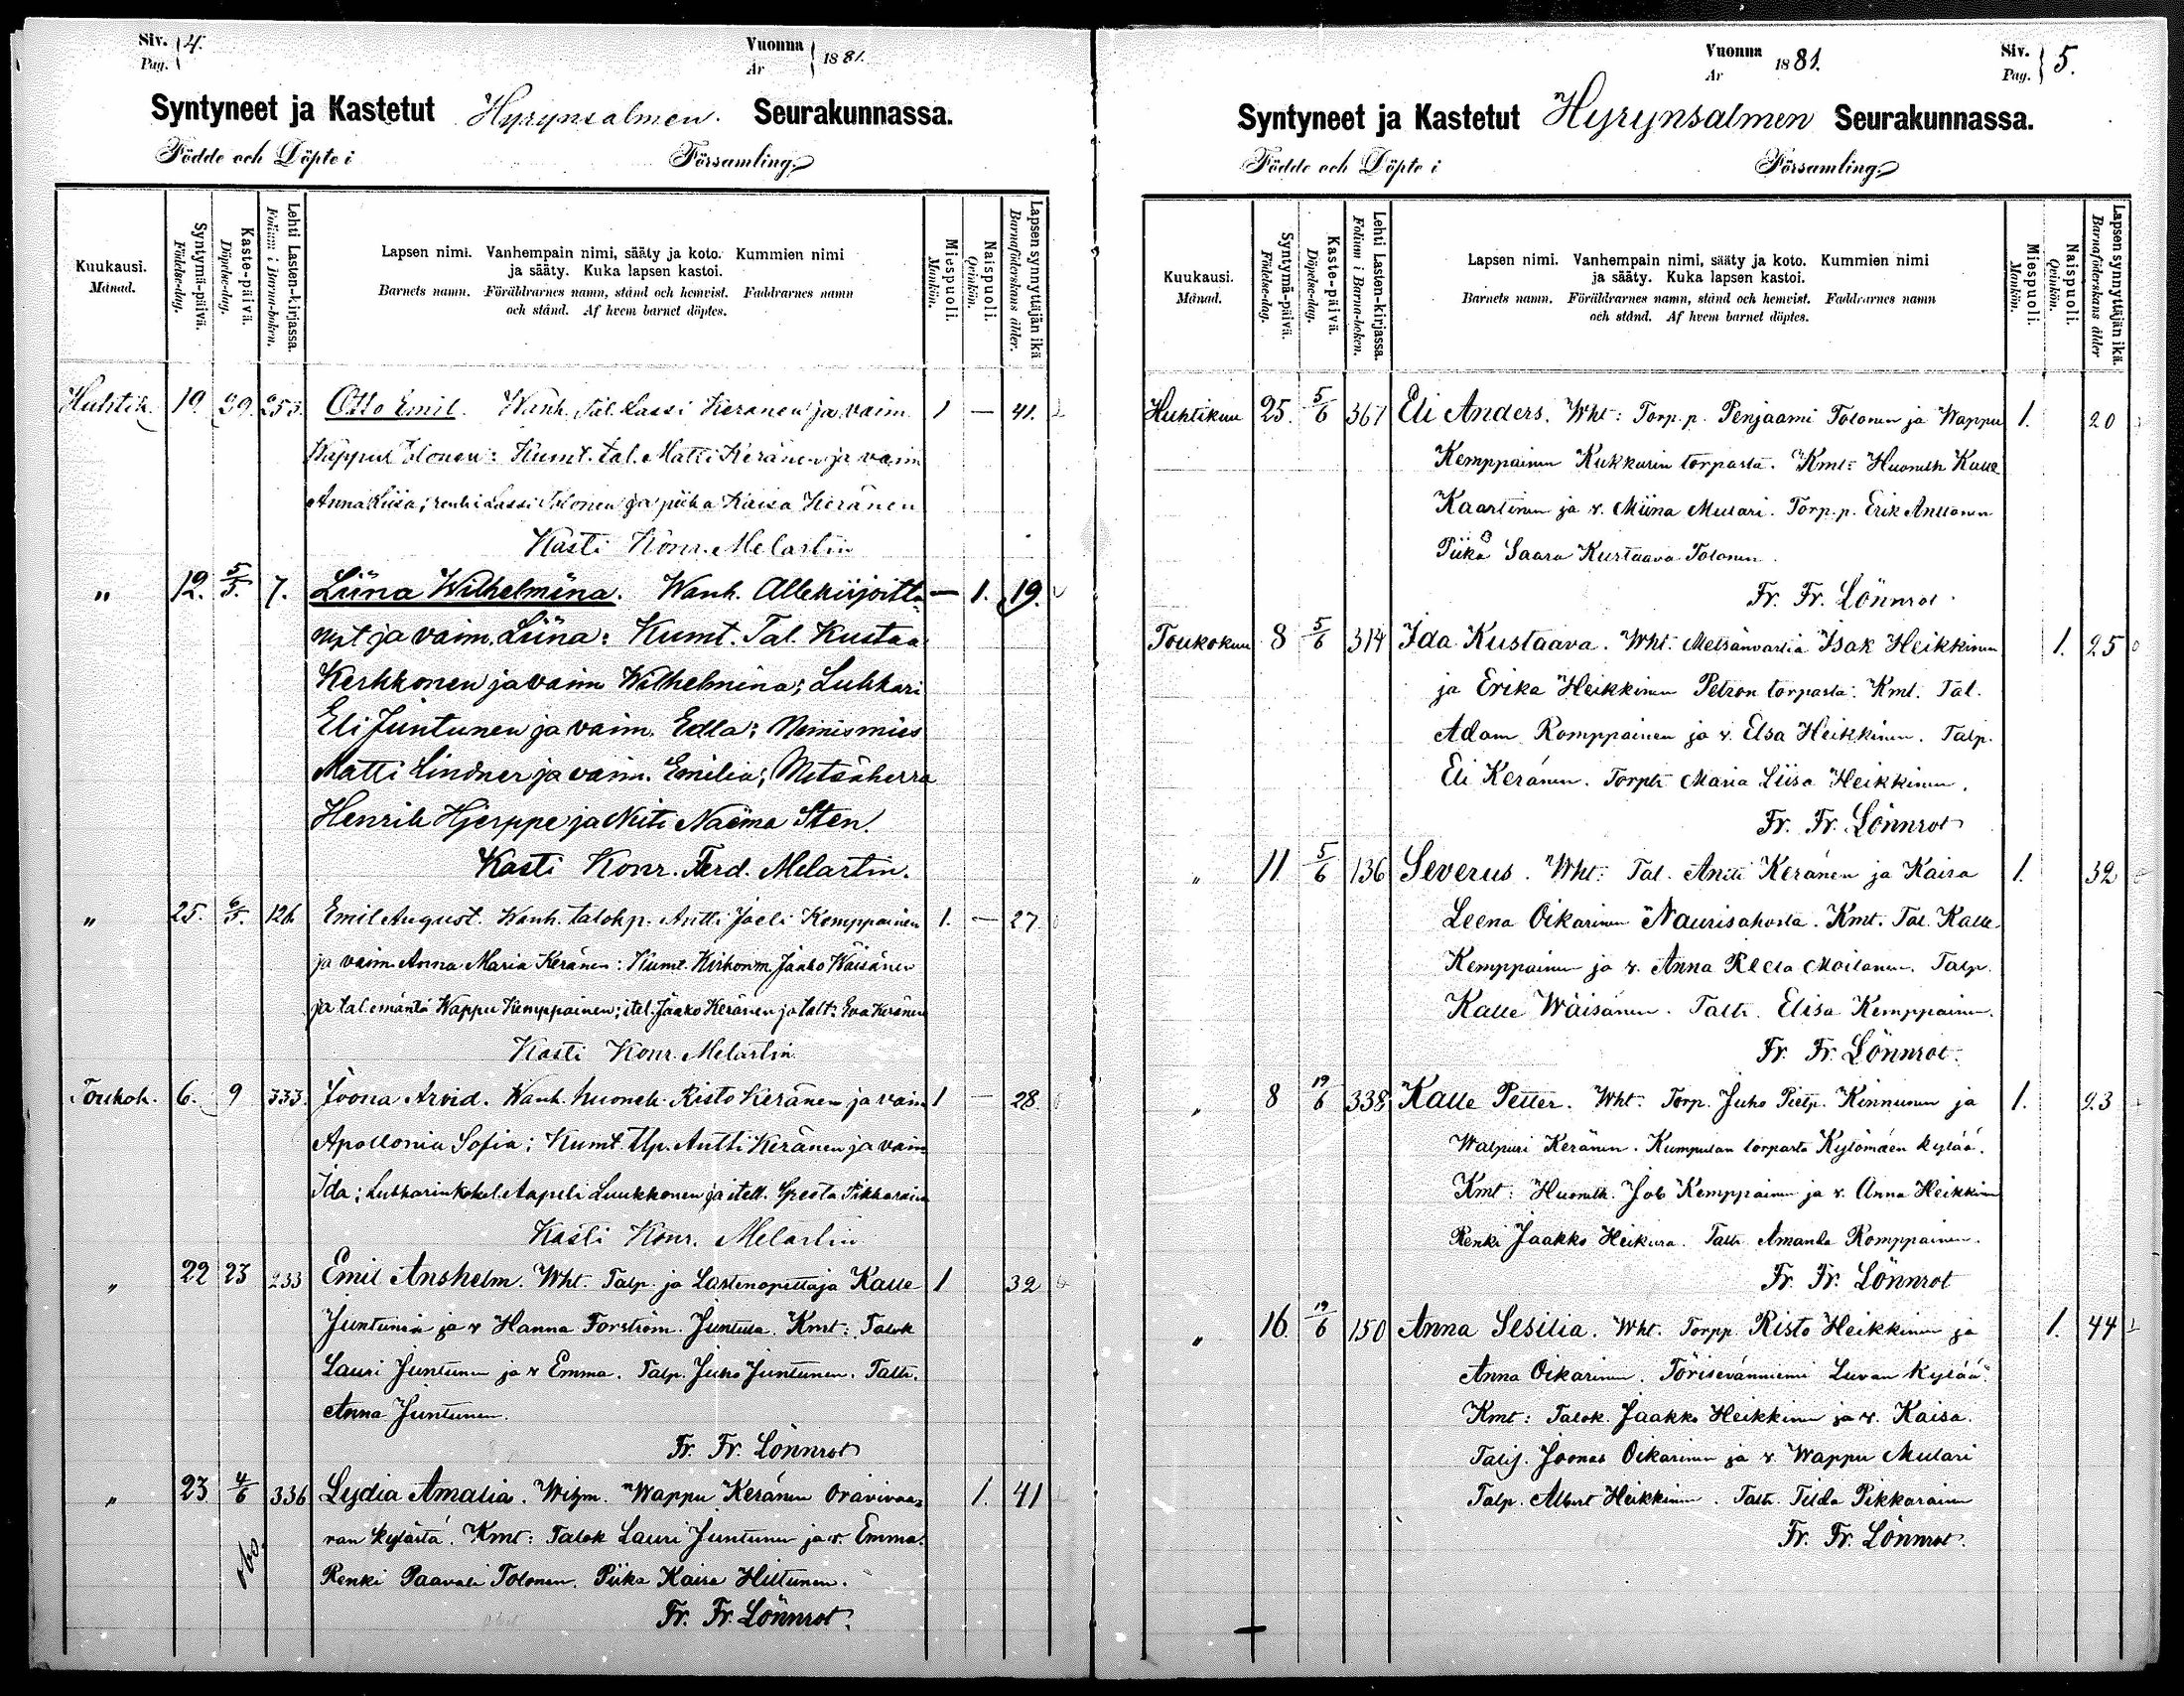 Siv. 4.
Pag.
Vuonna 1881.
År
Syntyneet ja Kastetut Hyrynsalmen. Seurakunnassa.
Födde och Döpte i Församling.
Kuukausi.
Månad.
Syntymä-päivä.
Födelse-dag.
Kaste-päivä.
Döpelse-dag.
Lehti Lasten-kirjassa.
Folium i Barna-boken.
Lapsen nimi. Vanhempain nimi, sääty ja koto. Kummien nimi
ja sääty. Kuka lapsen kastoi.
Barnets namn. Föräldrarnes namn, stånd och hemvist. Faddrarnes namn
och stånd. Af hvem barnet döptes.
Miespuoli.
Mankön.
Naispuoli.
Qvinkön.
Lapsen synnyttäjän ikä
Barnaföderskans ålder.
Huhtik. 19. 29. 253. Otto Emil. Wanh. Tal. Lassi Keränen ja vaim 1 — 41.
Wappu Tolonen: Kumt. tal. Matti Keränen ja vaim
Anna Liisa; renki Lassi Tolonen ja piika Kaisa Keränen
Kasti Konr. Melartin
" 12. 5/5. 7. Liina Wilhelmina. Wanh. Allekirjoitta- — 1. 19.
nut ja vaim. Liina: Kumt. Tal. Kustaa
Kerkkonen ja vaim Wilhelmina; Lukkari
Eli Juntunen ja vaim. Edla; Nimismies
Matti Lindner ja vaim. Emilia; Metsäherra
Henrik Hjerppe ja Neiti Naëma Sten.
Kasti Konr. Ferd. Melartin.
" 25. 6/5. 126 Emil August. Wanh. talokp. Antti Joeli Kemppainen 1. — 27.
ja vaim Anna Maria Keränen: Kumt. Kirkonm. Jaako Wäisänen
ja tal. emäntä Wappu Kemppainen; itel. Jaako Keränen ja talt: Eva Keränen
Kasti Konr. Melartin
Toukok. 6. 9 333. Joona Arvid. Wanh. huonek. Risto Keränen ja vaim 1 — 28.
Apollonia Sofia; Kumt. tlp. Antti Keränen ja vaim
Ida; Lukkarinkokel. Aapeli Luukkonen ja itell. Greeta Pikkarain
Kasti Konr. Melartin
" 22 23 233 Emil Anshelm. Wht. Talp. ja Lastenopettaja Kalle 1 32
Juntunen ja v Hanna Forström. Juntula. Kmt: Talok
Lauri Juntunen ja v Emma. Talp. Juho Juntunen. Taltr.
Anna Juntunen.
Fr. Fr. Lönnrot
" 23 4/6 336 Lydia Amalia. Wihm. Wappu Keränen Oravivaa- 1. 41
ran kylästä. Kmt: Talok Lauri Juntunen ja v. Emma.
Renki Paavali Tolonen. Piika Kaisa Hiltunen.
Fr. Fr. Lönnrot.
Vuonna 1881.
År
Siv. 5.
Pag.
Syntyneet ja Kastetut Hyrynsalmen Seurakunnassa.
Födde och Döpte i Församling.
Kuukausi.
Månad.
Syntymä-päivä.
Födelse-dag.
Kaste-päivä.
Döpelse-dag.
Lehti Lasten-kirjassa.
Folium i Barna-boken.
Lapsen nimi. Vanhempain nimi, sääty ja koto. Kummien nimi
ja sääty. Kuka lapsen kastoi.
Barnets namn. Föräldrarnes namn, stånd och hemvist. Faddrarnes namn
och stånd. Af hvem barnet döptes.
Miespuoli.
Mankön.
Naispuoli.
Qvinkön.
Lapsen synnyttäjän ikä.
Barnaföderskans ålder
Huhtikuu 25. 5/6 361 Eli Anders. Wht: Torp. p. Penjaami Tolonen ja Wappu 1. 20
Kemppainen Kukkurin torpasta. Kmt: Huonelh Kalle
Kaartinen ja v. Miina Mulari. Torp. p. Erik Anttonen
Piika Saara Kustaava Tolonen.
Fr. Fr. Lönnrot.
Toukokuu 8 5/6 314 Ida Kustaava. Wht. Metsänvartia Isak Heikkinen 1. 25
ja Erika Heikkinen Petron torpasta: Kmt. Tal.
Adam Komppainen ja v. Elsa Heikkinen. Talp.
Eli Keränen. Torptr. Maria Liisa Heikkinen.
Fr. Fr. Lönnrot
" 11. 5/6 136 Severus. Wht: Tal. Antti Keränen ja Kaisa 1. 32
Leena Oikarinen Naurisahosta. Kmt. Tal. Kalle
Kemppainen ja v. Anna Reeta Moilanen. Talp.
Kalle Wäisänen. Taltr. Elisa Kemppainen.
Fr. Fr. Lönnrot.
" 8 19/6 338 Kalle Petter. Wht. Torp. Juho Pietp. Kinnunen ja 1. 23
Walpuri Keränen. Kumpulan torpasta Kytömäen kylää.
Kmt: Huonelh. Job Kemppainen ja v. Anna Heikkinen
Renki Jaakko Heikura. Taltr. Amanda Komppainen.
Fr. Fr. Lönnrot
" 16. 19/6 150 Anna Sesilia. Wht. Torpp. Risto Heikkinen ja 1. 44
Anna Oikarinen. Törisevänniemi Luvan kylää.
Kmt: Talok. Jaakko Heikkinen ja v. Kaisa.
Talij. Joonas Oikarinen ja v. Wappu Mulari
Talp. Albert Heikkinen. Taltr. Tilda Pikkarainen
Fr. Fr. Lönnrot.